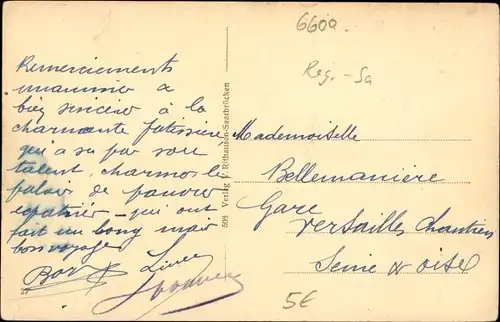 6600
Reg.-Sa
Remerciements
unanimes &
bien sincères à la
charmante Patissière
qui a su par son
talent, charmer le
palais de pauvres
expatriés - qui ont
fait un bong mau
bon voyage
509 Verlag Rithausen-Saarbrücken
Mademoiselle
Bellemanière
Gare
Versailles Chantiers
Seine & Oise
5€